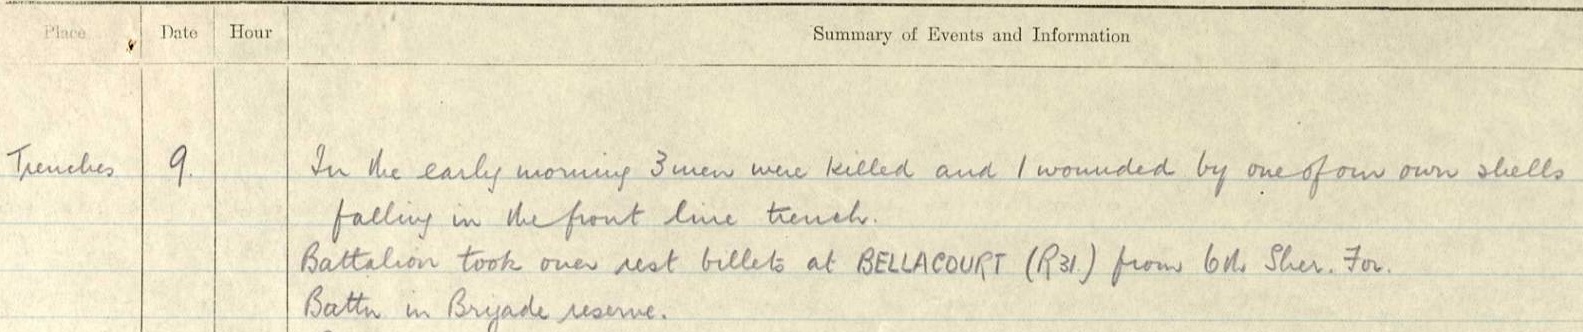 Place Date Hour Summary of Events and Information
Trenches 9. In the early morning 3 men were killed and 1 wounded by one of our own shells
falling in the front line trench.
Battalion took over rest billets at BELLACOURT (R31.) from 6th Sher. For.
Battn in Brigade reserve.